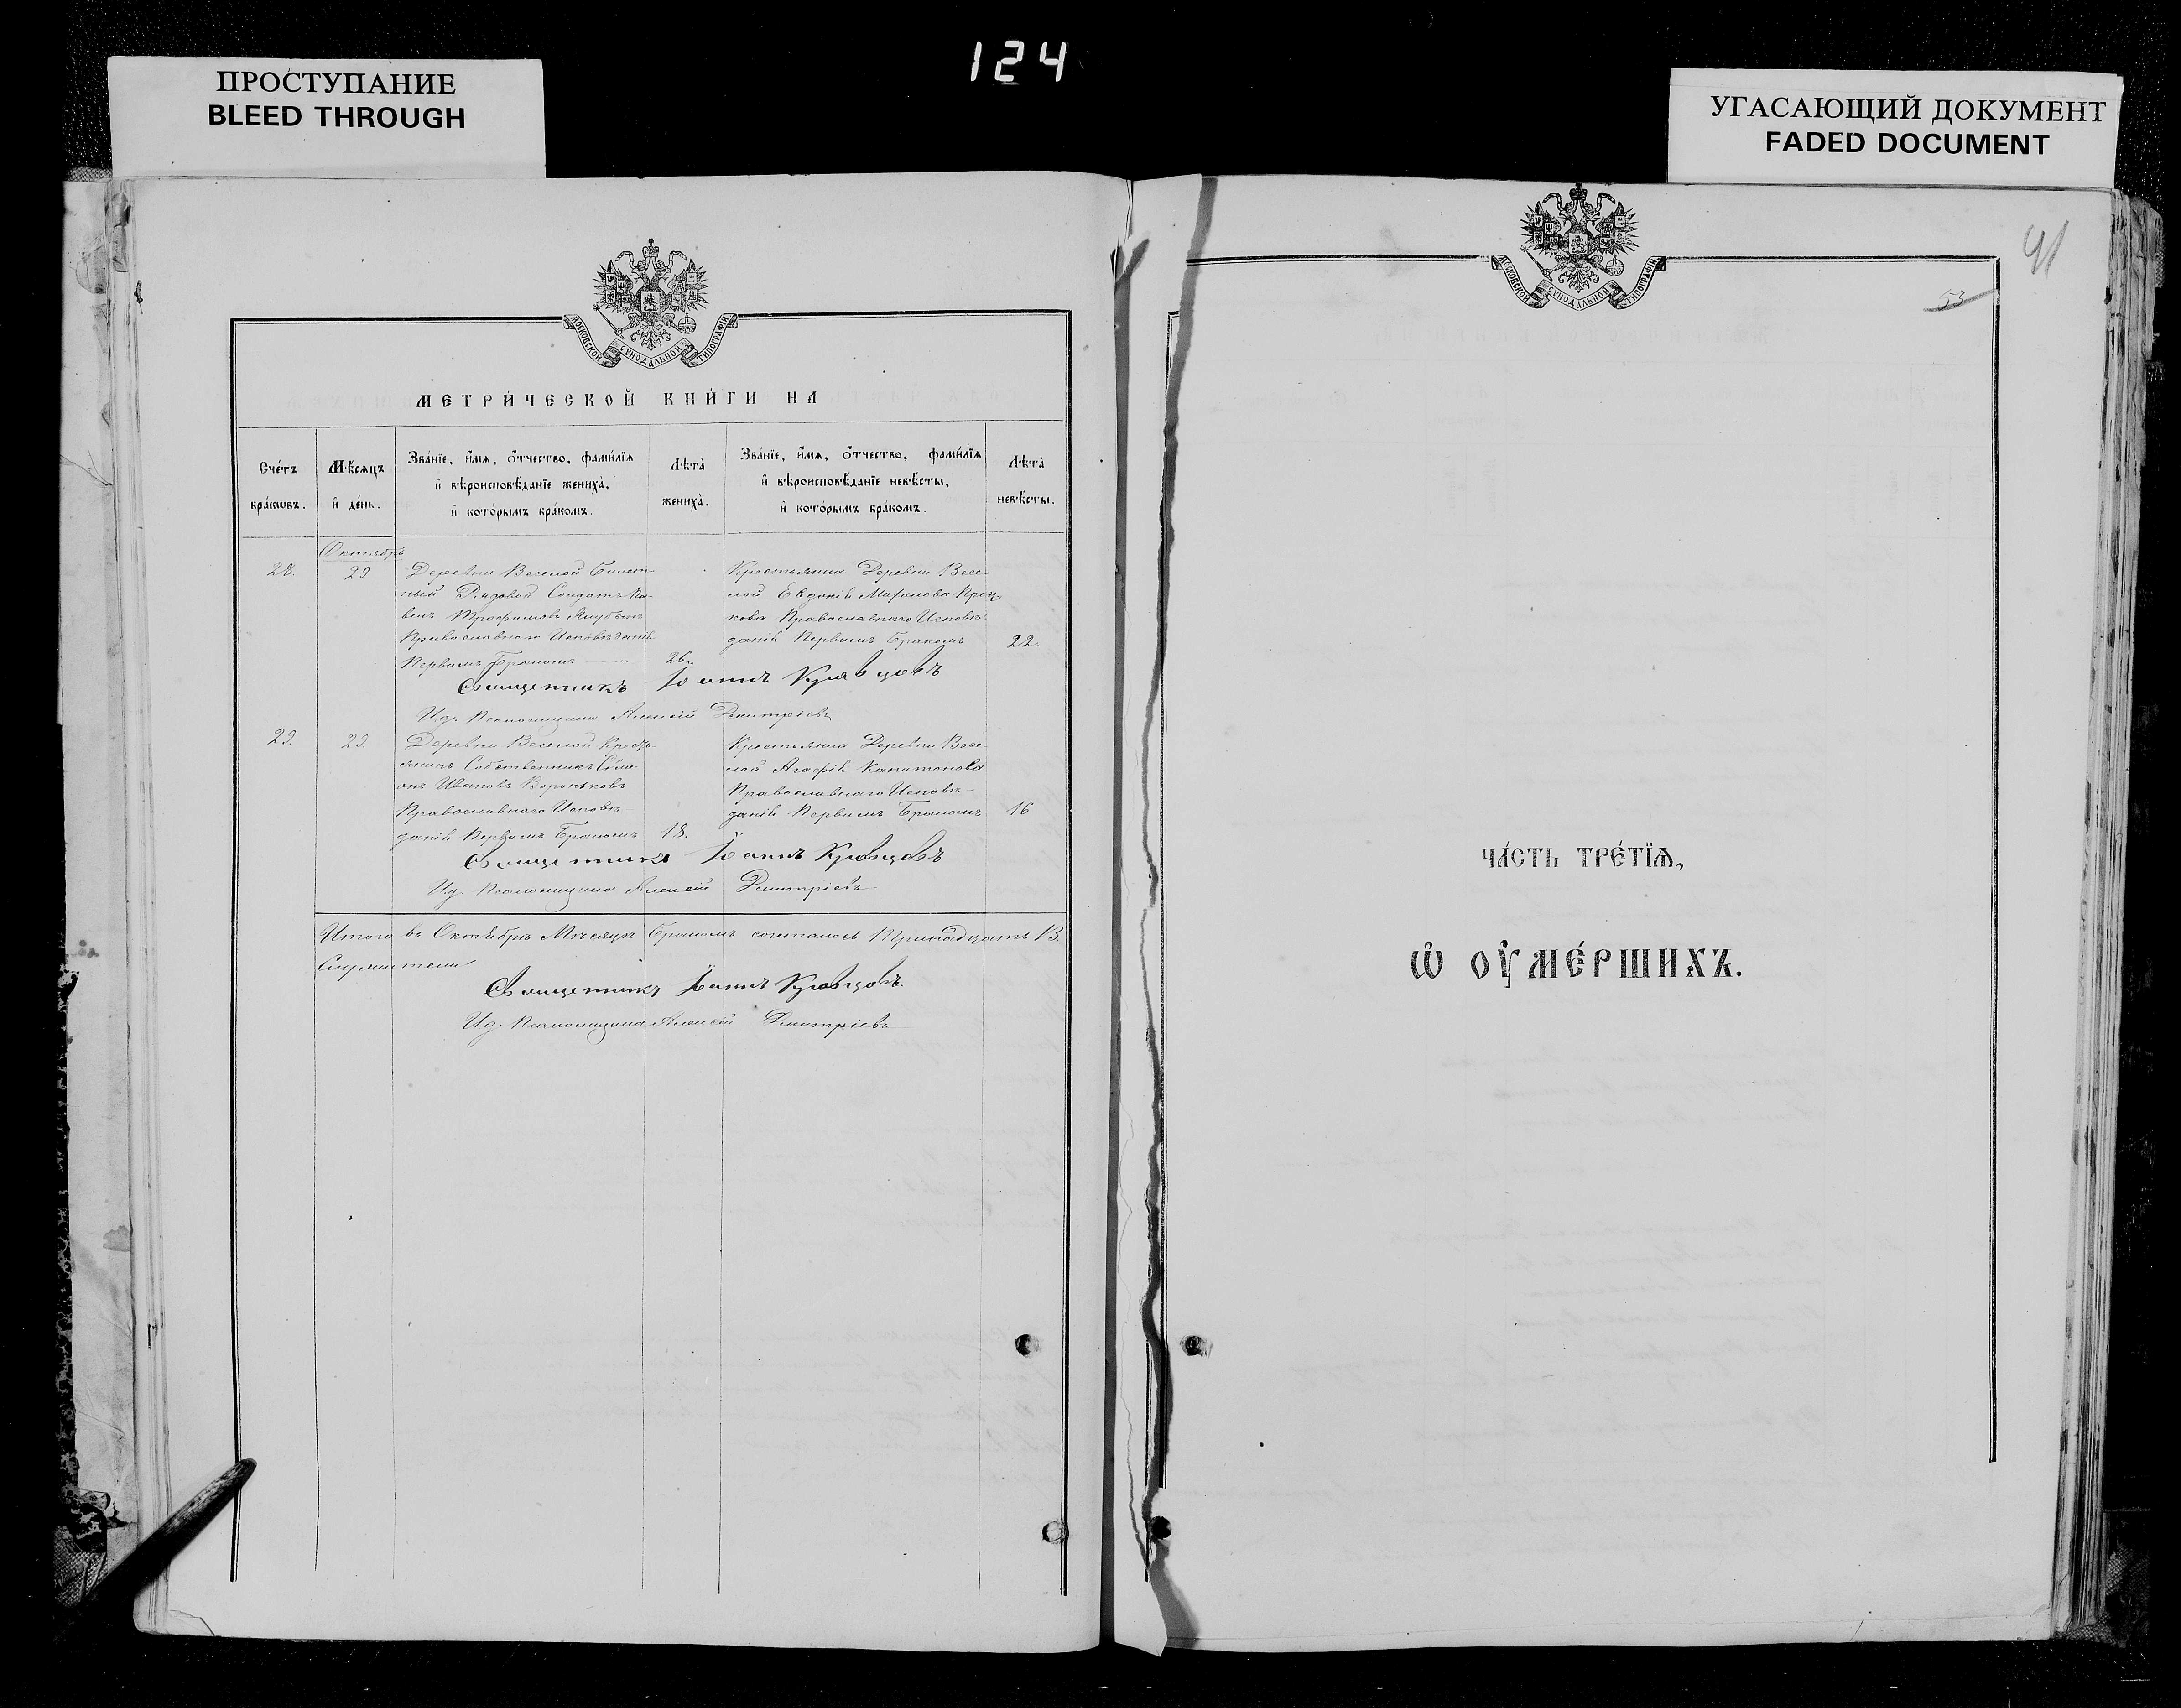 124
ПРОСТУПАНИЕ
BLEED THROUGH
УГАСАЮЩИЙ ДОКУМЕНТ
FADED DOCUMENT
МОСКОВСКОЙ СѴНОДАЛЬНОЙ ТИПОГРАФІИ
МЕТРИ́ЧЕСКОЙ КНИ́ГИ НА
Счéтъ бра́кѡвъ.
Мѣ́сѧцъ и҆ де́нь.
Зва́нїе, и҆́мѧ, ѻ҆́тчество, фами́лїѧ
и҆ вѣроисповѣ́данїе жениха̀,
и҆ кото́рымъ бра́комъ.
Лѣта̀ жениха̀.
Зва́нїе, и҆́мѧ, ѻ҆́тчество, фами́лїѧ
и҆ вѣроисповѣ́данїе невѣ́сты,
и҆ кото́рымъ бра́комъ.
Лѣта̀ невѣ́сты.
Октябрь
28. 29
Деревни Веселой Билет-
ный Рядовой Солдатъ Па-
велъ Трофимовъ
Православнаго Исповѣданія
Первымъ Бракомъ
26.
Крестьянка Деревни Весе-
лой Евдокія
Православнаго Исповѣ-
данія Первымъ Бракомъ
22.
Священникъ Іоаннъ Кравцовъ
Ид. Псаломщика Алексій Дмитріевъ
29. 29.
Деревни Веселой Кресть-
янинъ Собственникъ Симе-
онъ Ивановъ Вороньковъ
Православнаго Исповѣ-
данія Первымъ Бракомъ
18.
Крестьянка Деревни Весе-
лой Агафія Капитонова
Православнаго Исповѣ-
данія Первымъ Бракомъ
16
Священникъ Іоаннъ Кравцовъ
Ид. Псаломщика Алексій Дмитріевъ
Итого въ Октябрѣ Мѣсяцѣ Бракомъ сочеталось Тринадцать 13.
Служители
Священникъ Іоаннъ Кравцовъ.
Ид. Псаломщика Алексій Дмитріевъ
МОСКОВСКОЙ СѴНОДАЛЬНОЙ ТИПОГРАФІИ
91
53
ЧА́СТЬ ТРЕ́ТЇѦ,
Ѽ ОУ҆МЕ́РШИХЪ.